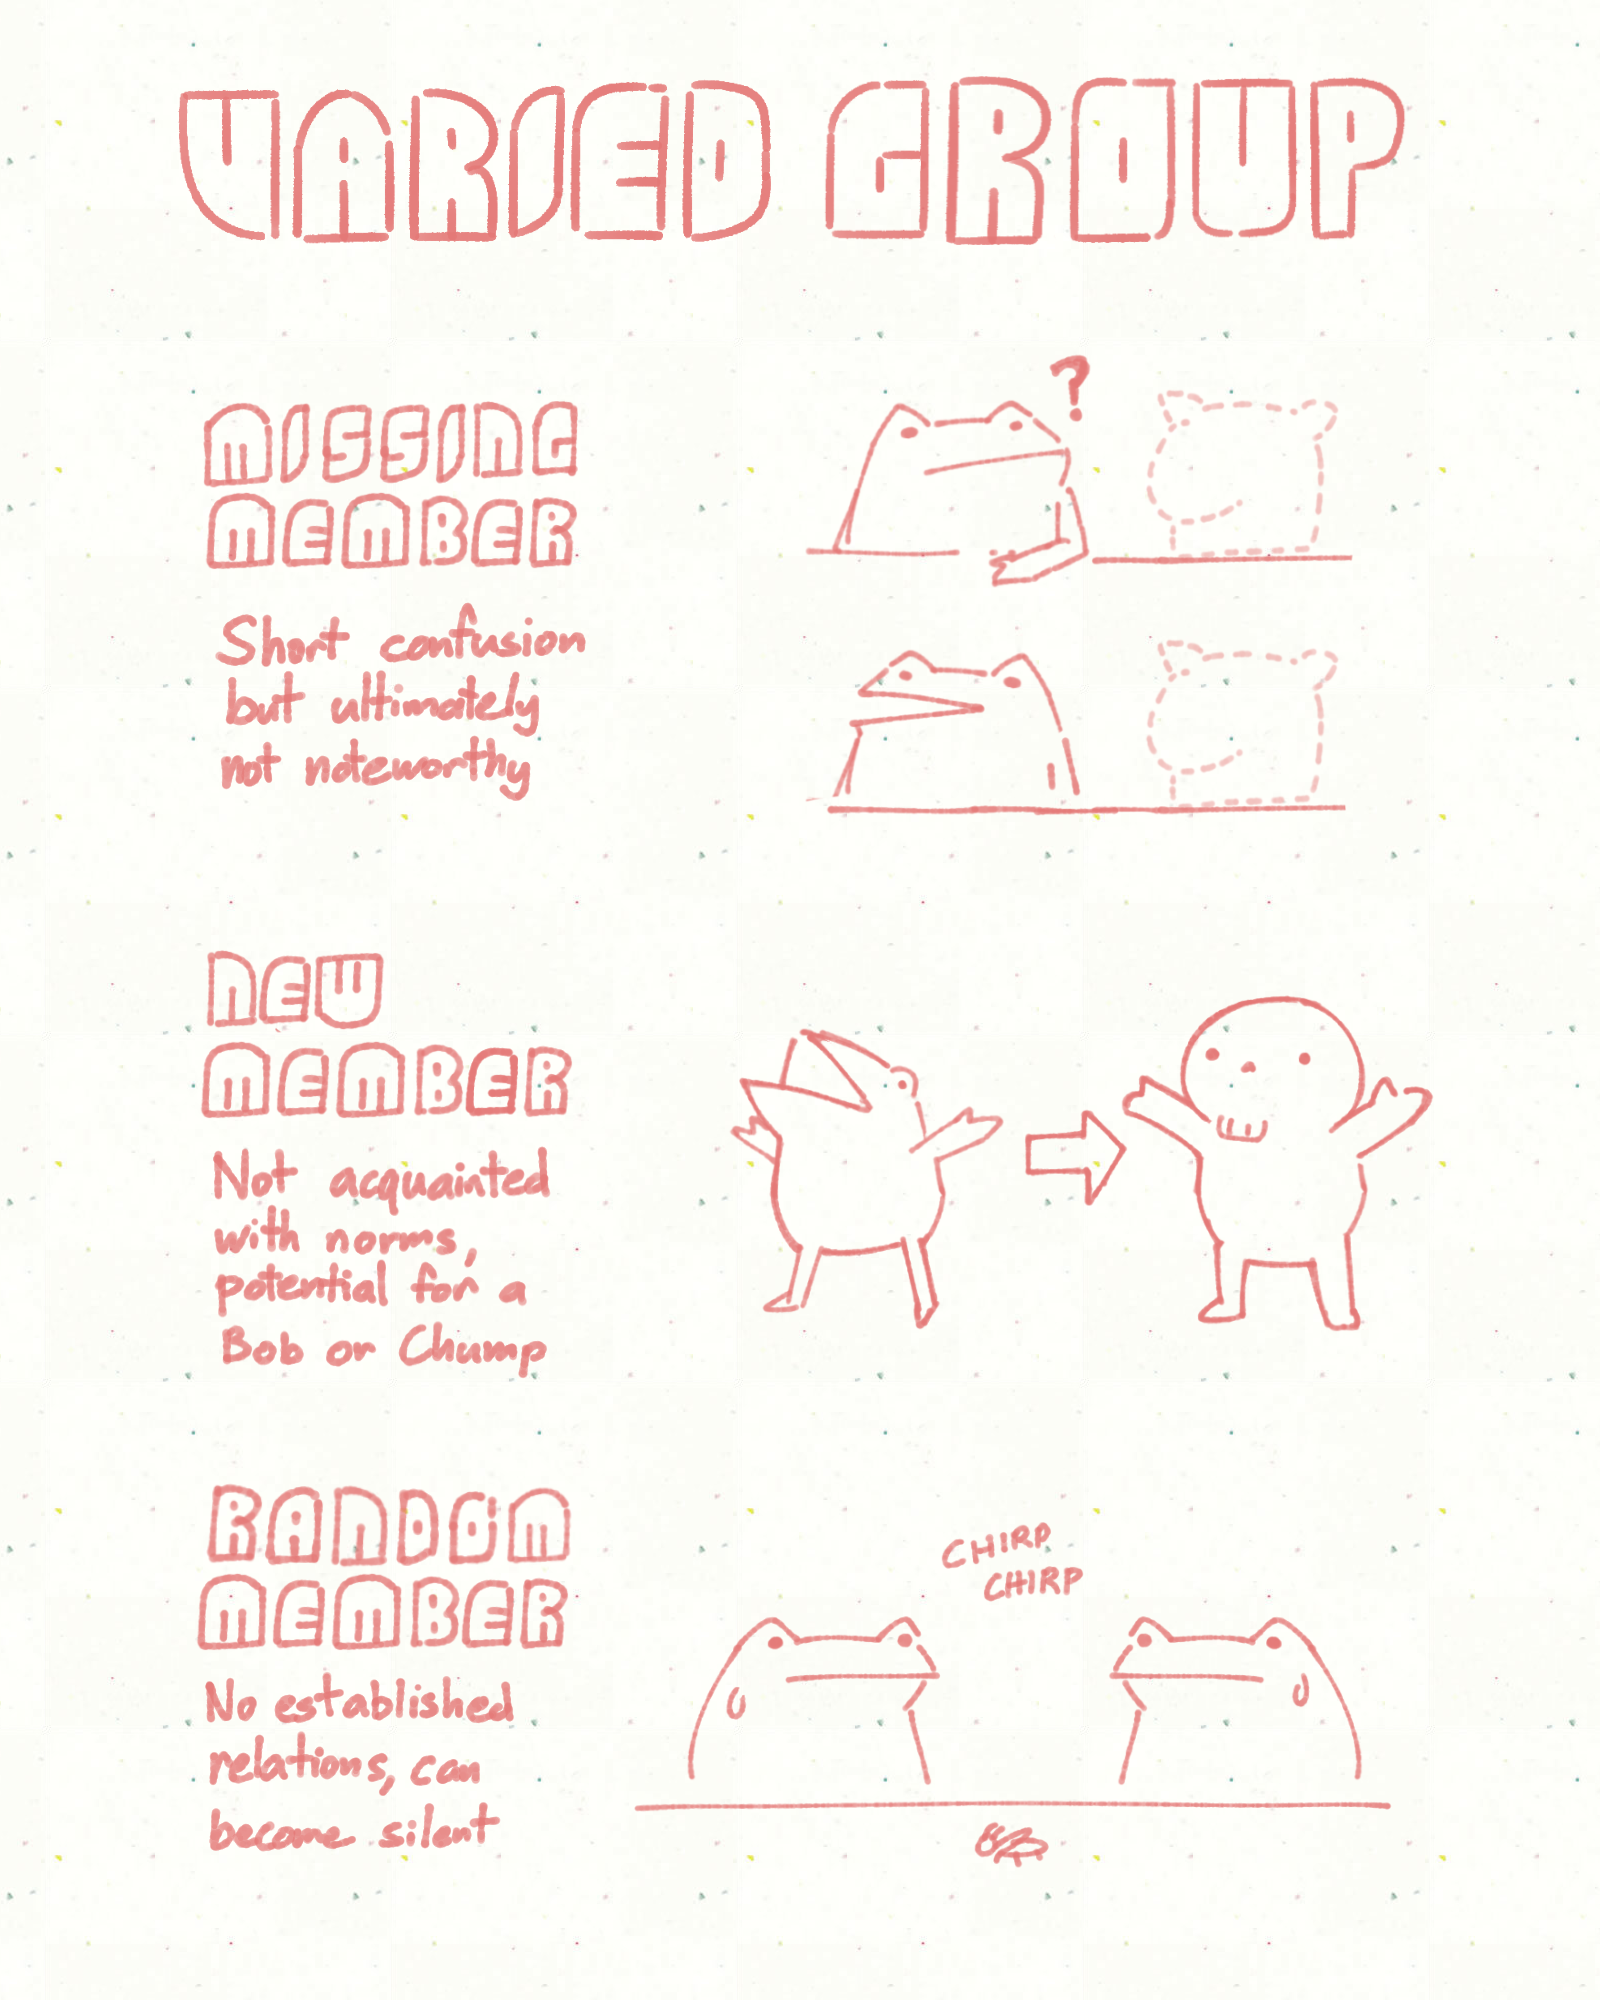 VARIED GROUP
MISSING
MEMBER
?
Short confusion
but ultimately
not noteworthy
NEW
MEMBER
Not acquainted
with norms,
potential for a
Bob or Chump
RANDOM
MEMBER
CHIRP
CHIRP
No established
relations, can
become silent